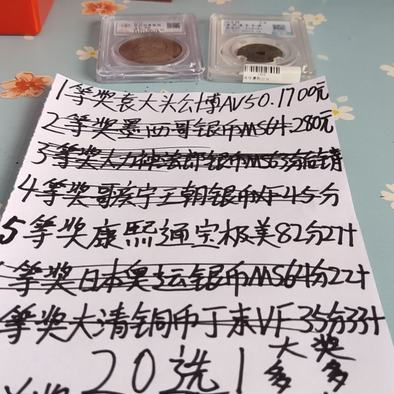 1等奖袁大头公博AV50.1700元
2等奖墨西哥银币MS64.280元
3等奖大力神法郎银币MS63分
4等奖哥疾宁王朝银币XF45分
5等奖康熙通宝极美82分27计
等奖日本奥运银币MS64分22计
等奖大清铜币丁未VF35分33计
20选1
大奖
多多